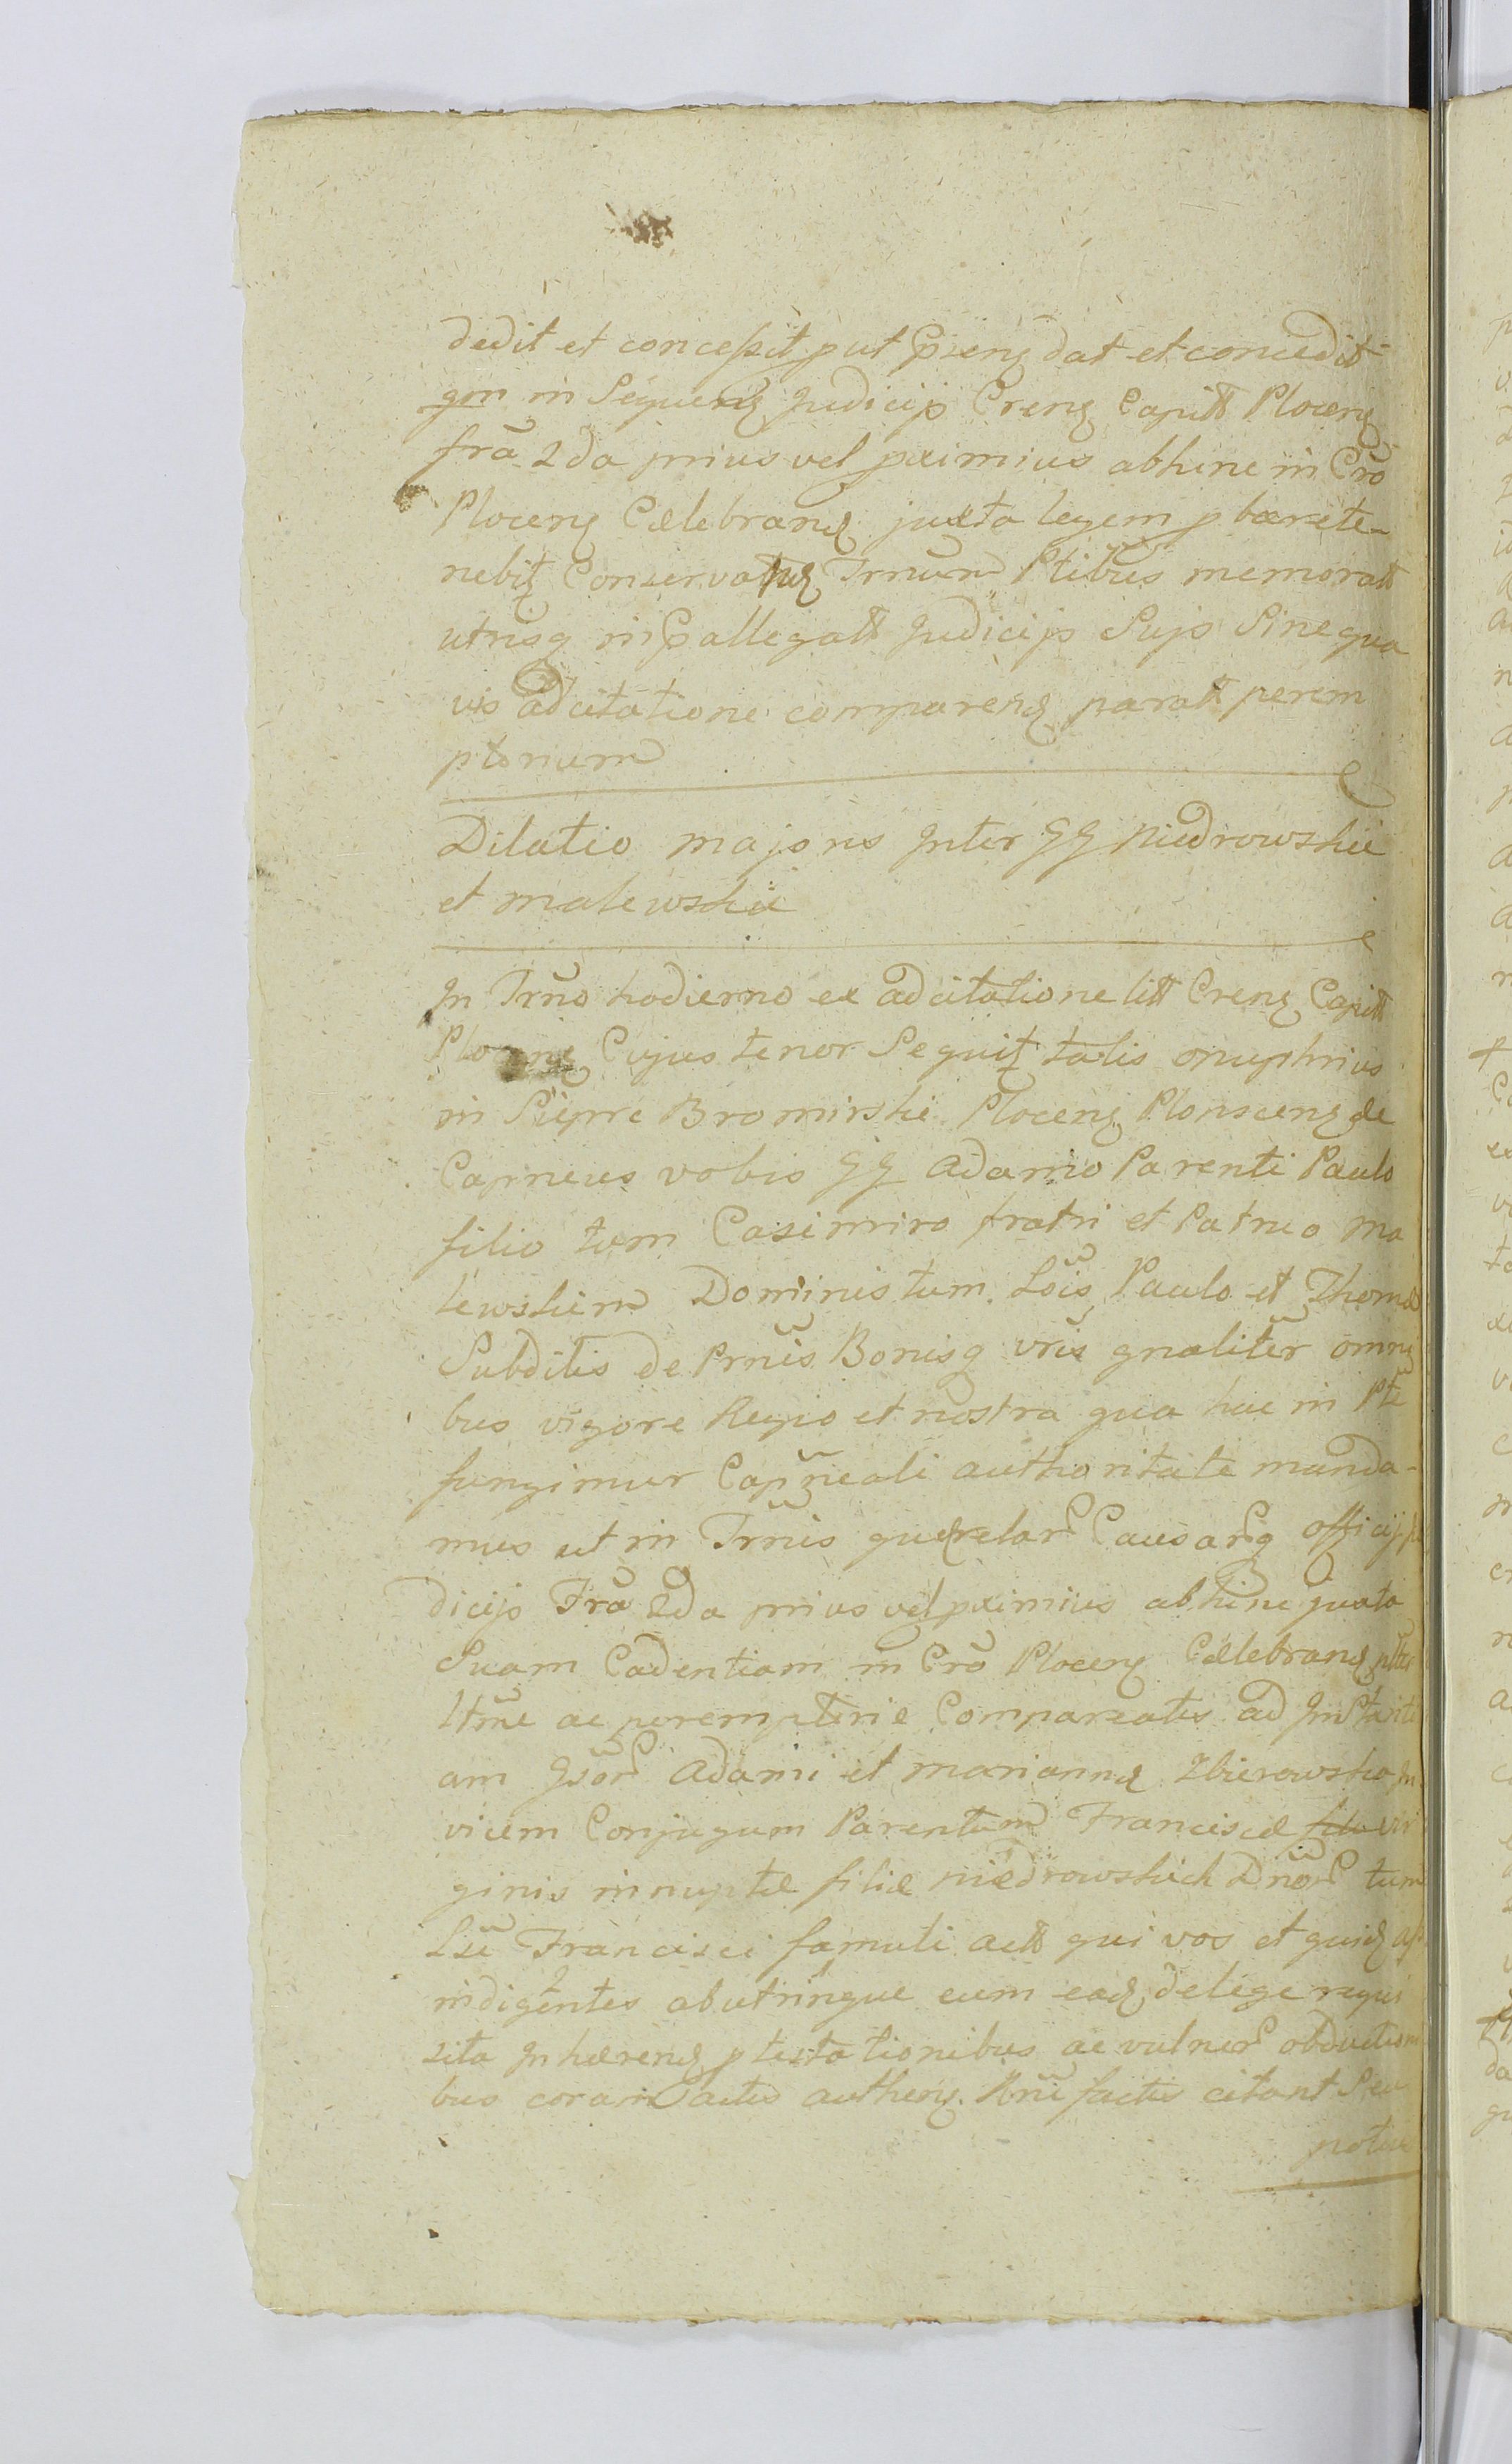 dedit et concessit put Pnsenz dat et concedit
qm in Sequenz Judicijs Crenz Capitt Plocenz
fra 2da prius vel pximius abhinc in Cro
Plocenz Celebranz juxta legem pbare te-
nebitz Conservatuz Trnum Ptibus memoratt
utrisq in Pallegatt Judicijs Sujs Sine qua
vis adcitatione comparenz paratt perem
ptorium
Dilatio majoris Inter GG Niedrowskie
et Malewskie
In Trno hodierno ex adcitatione litt Crenz Capitt
Plocenz Cujus tenor Sequitz talis Onuphrius
in Siepre Bromirski Plocenz Plonscenz &c
Capneus vobis GG Adamo Parenti Paulo
filio tum Casimiro fratri et Patruo Ma
lewskim Dominis tum Lois Paulo et Thoma
Subditis de Prnis Bonisq vris gnaliter omni
bus vigore Regio et nostra qua hac in Pte
fungimur Capneali authoritate manda-
mus ut in Trnis querelar Causarq officij
dicijs Fra 2da prius vel pximius abhinc juxta
Suam Cadentiam in Cro Plocenz Celebranz
ltme ac peremptorie Compareatis ad Instanti
am Gsor Adami et Mariannæ Zbierowska In
vicem Conjugum Parentum Franciscæ vir
ginis innuptæ filiæ Niedrowskich Dnor tum
Lsi Francisci famuli actt qui vos et quidz
indigentes ab utrinque cum eadz de lege requi
sita Inhærenz ptestationibus ac vulner obductioni
bus coram actis authenz factis citant Seu